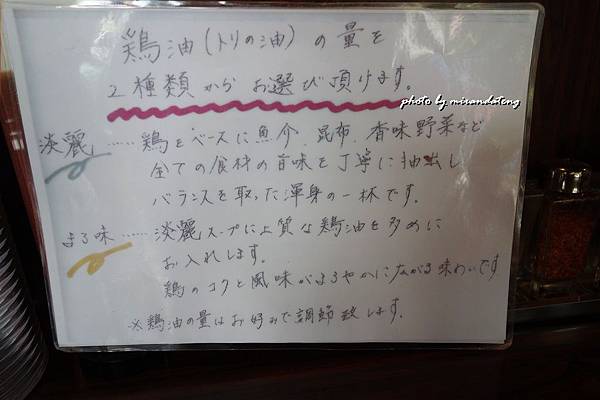 鶏油(トリの油)の量を
2種類からお選び頂けます。
photo by mirandateng
淡麗……鶏をベースに魚介、昆布、香味野菜など
全ての食材の旨味を丁寧に抽出し
バランスを取った渾身の一杯です。
まろ味……淡麗スープに上質な鶏油を多めに
お入れします。
鶏のコクと風味がまろやかに広がる味わいです
※鶏油の量はお好みで調節致します。